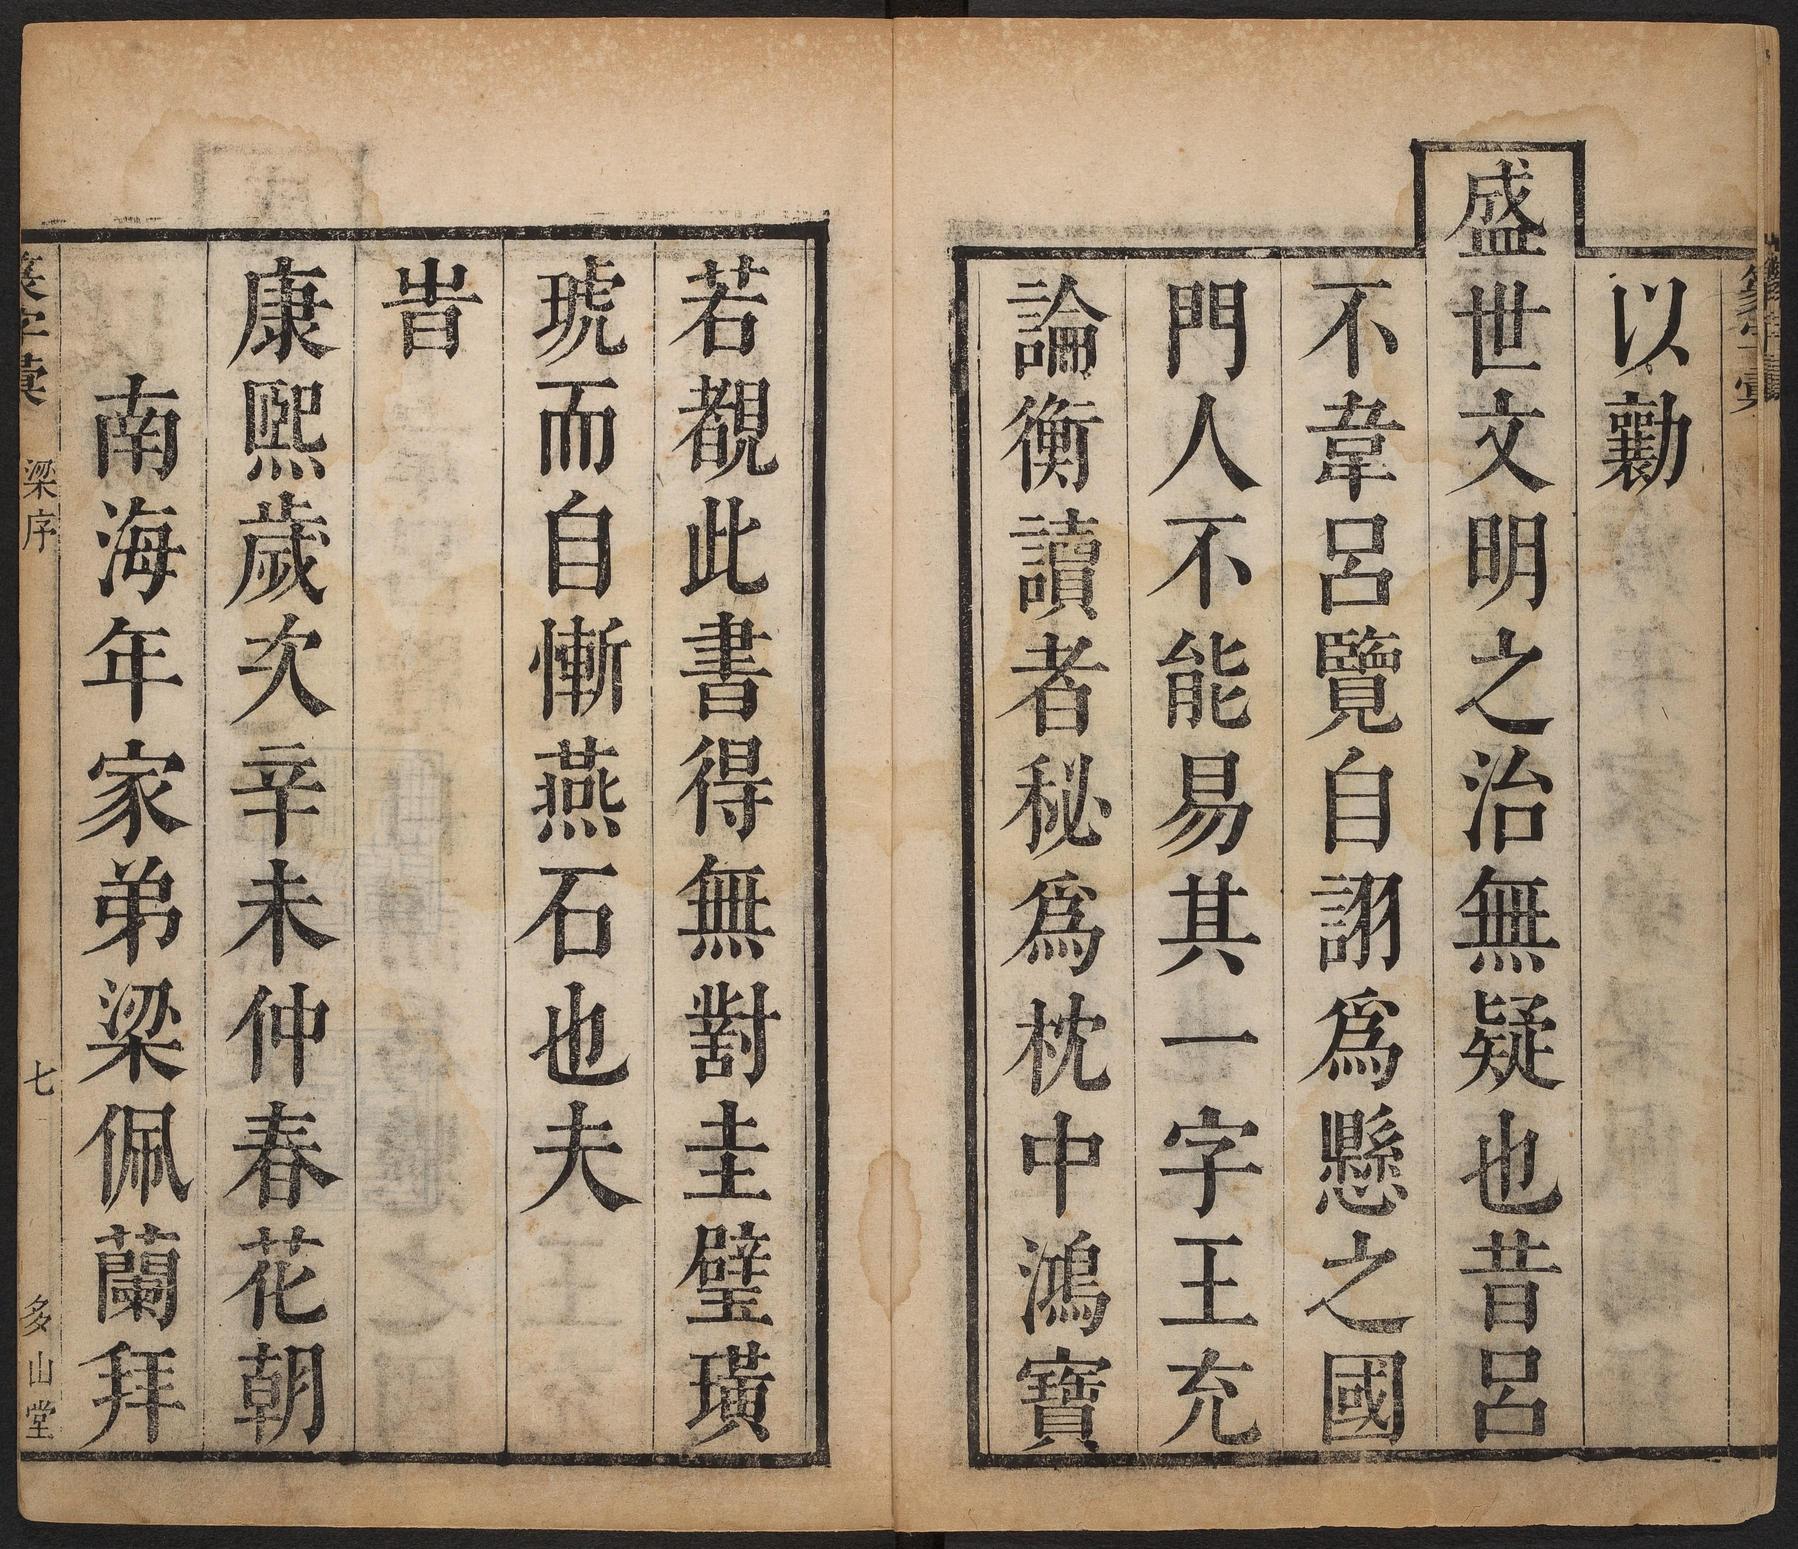 以勷
盛世文明之治無疑也昔呂
不韋呂覽自詡爲懸之國
門人不能易其一字王充
論衡讀者秘爲枕中鴻寶
若覩此書得無對圭璧璜
琥而自慚燕石也夫
旹
康熙歲次辛未仲春花朝
南海年家弟梁佩蘭拜
字彙 梁序 七 多山堂